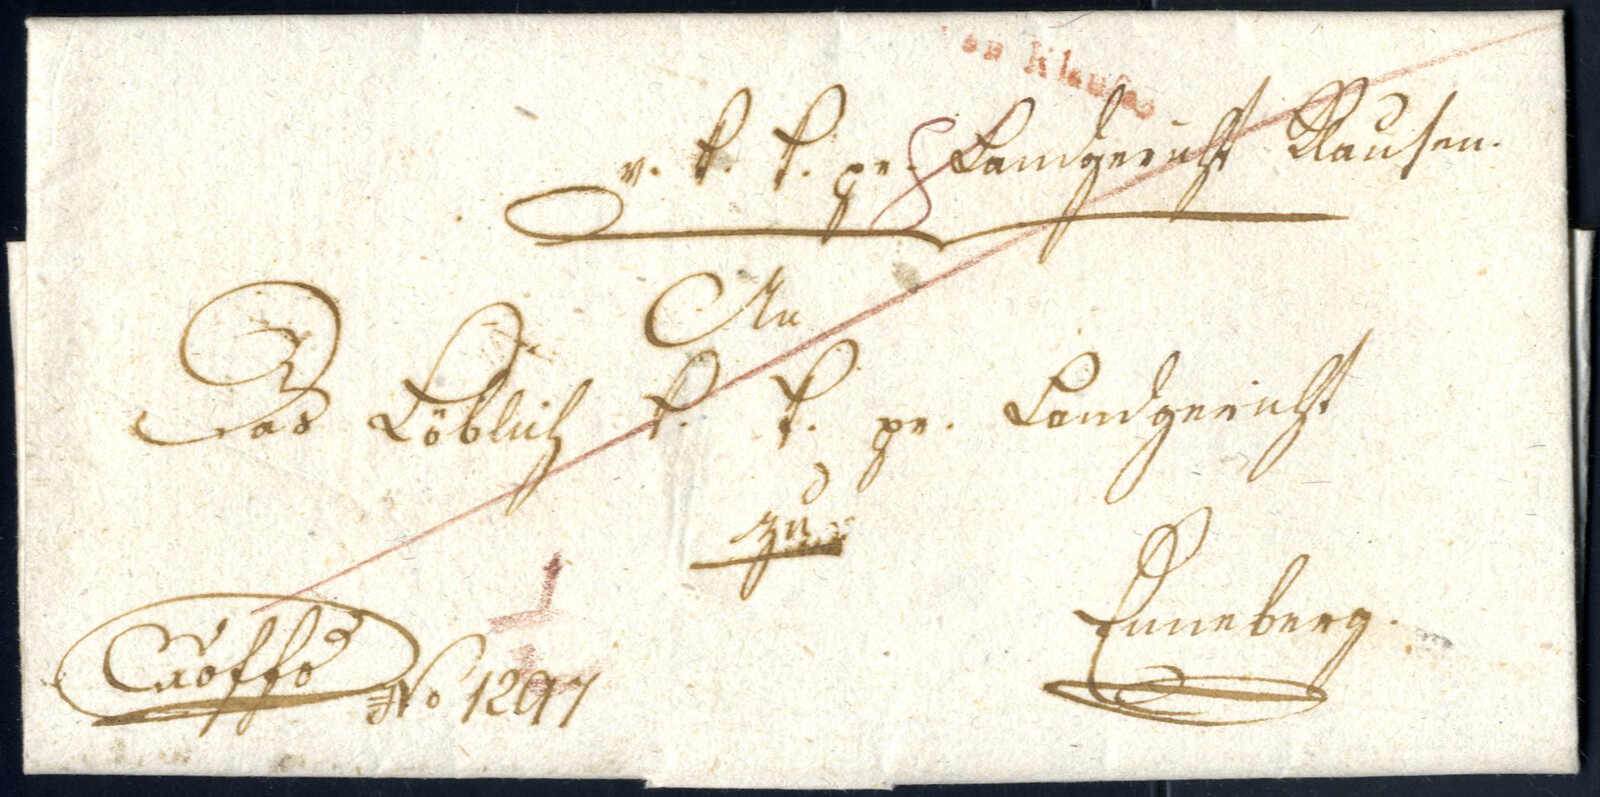 von Klausen
v. k. k. pr. Landgericht Klausen.
An
Das Löblich k. k. pr. Landgericht
zu
Enneberg.
Ex offo
No 1297